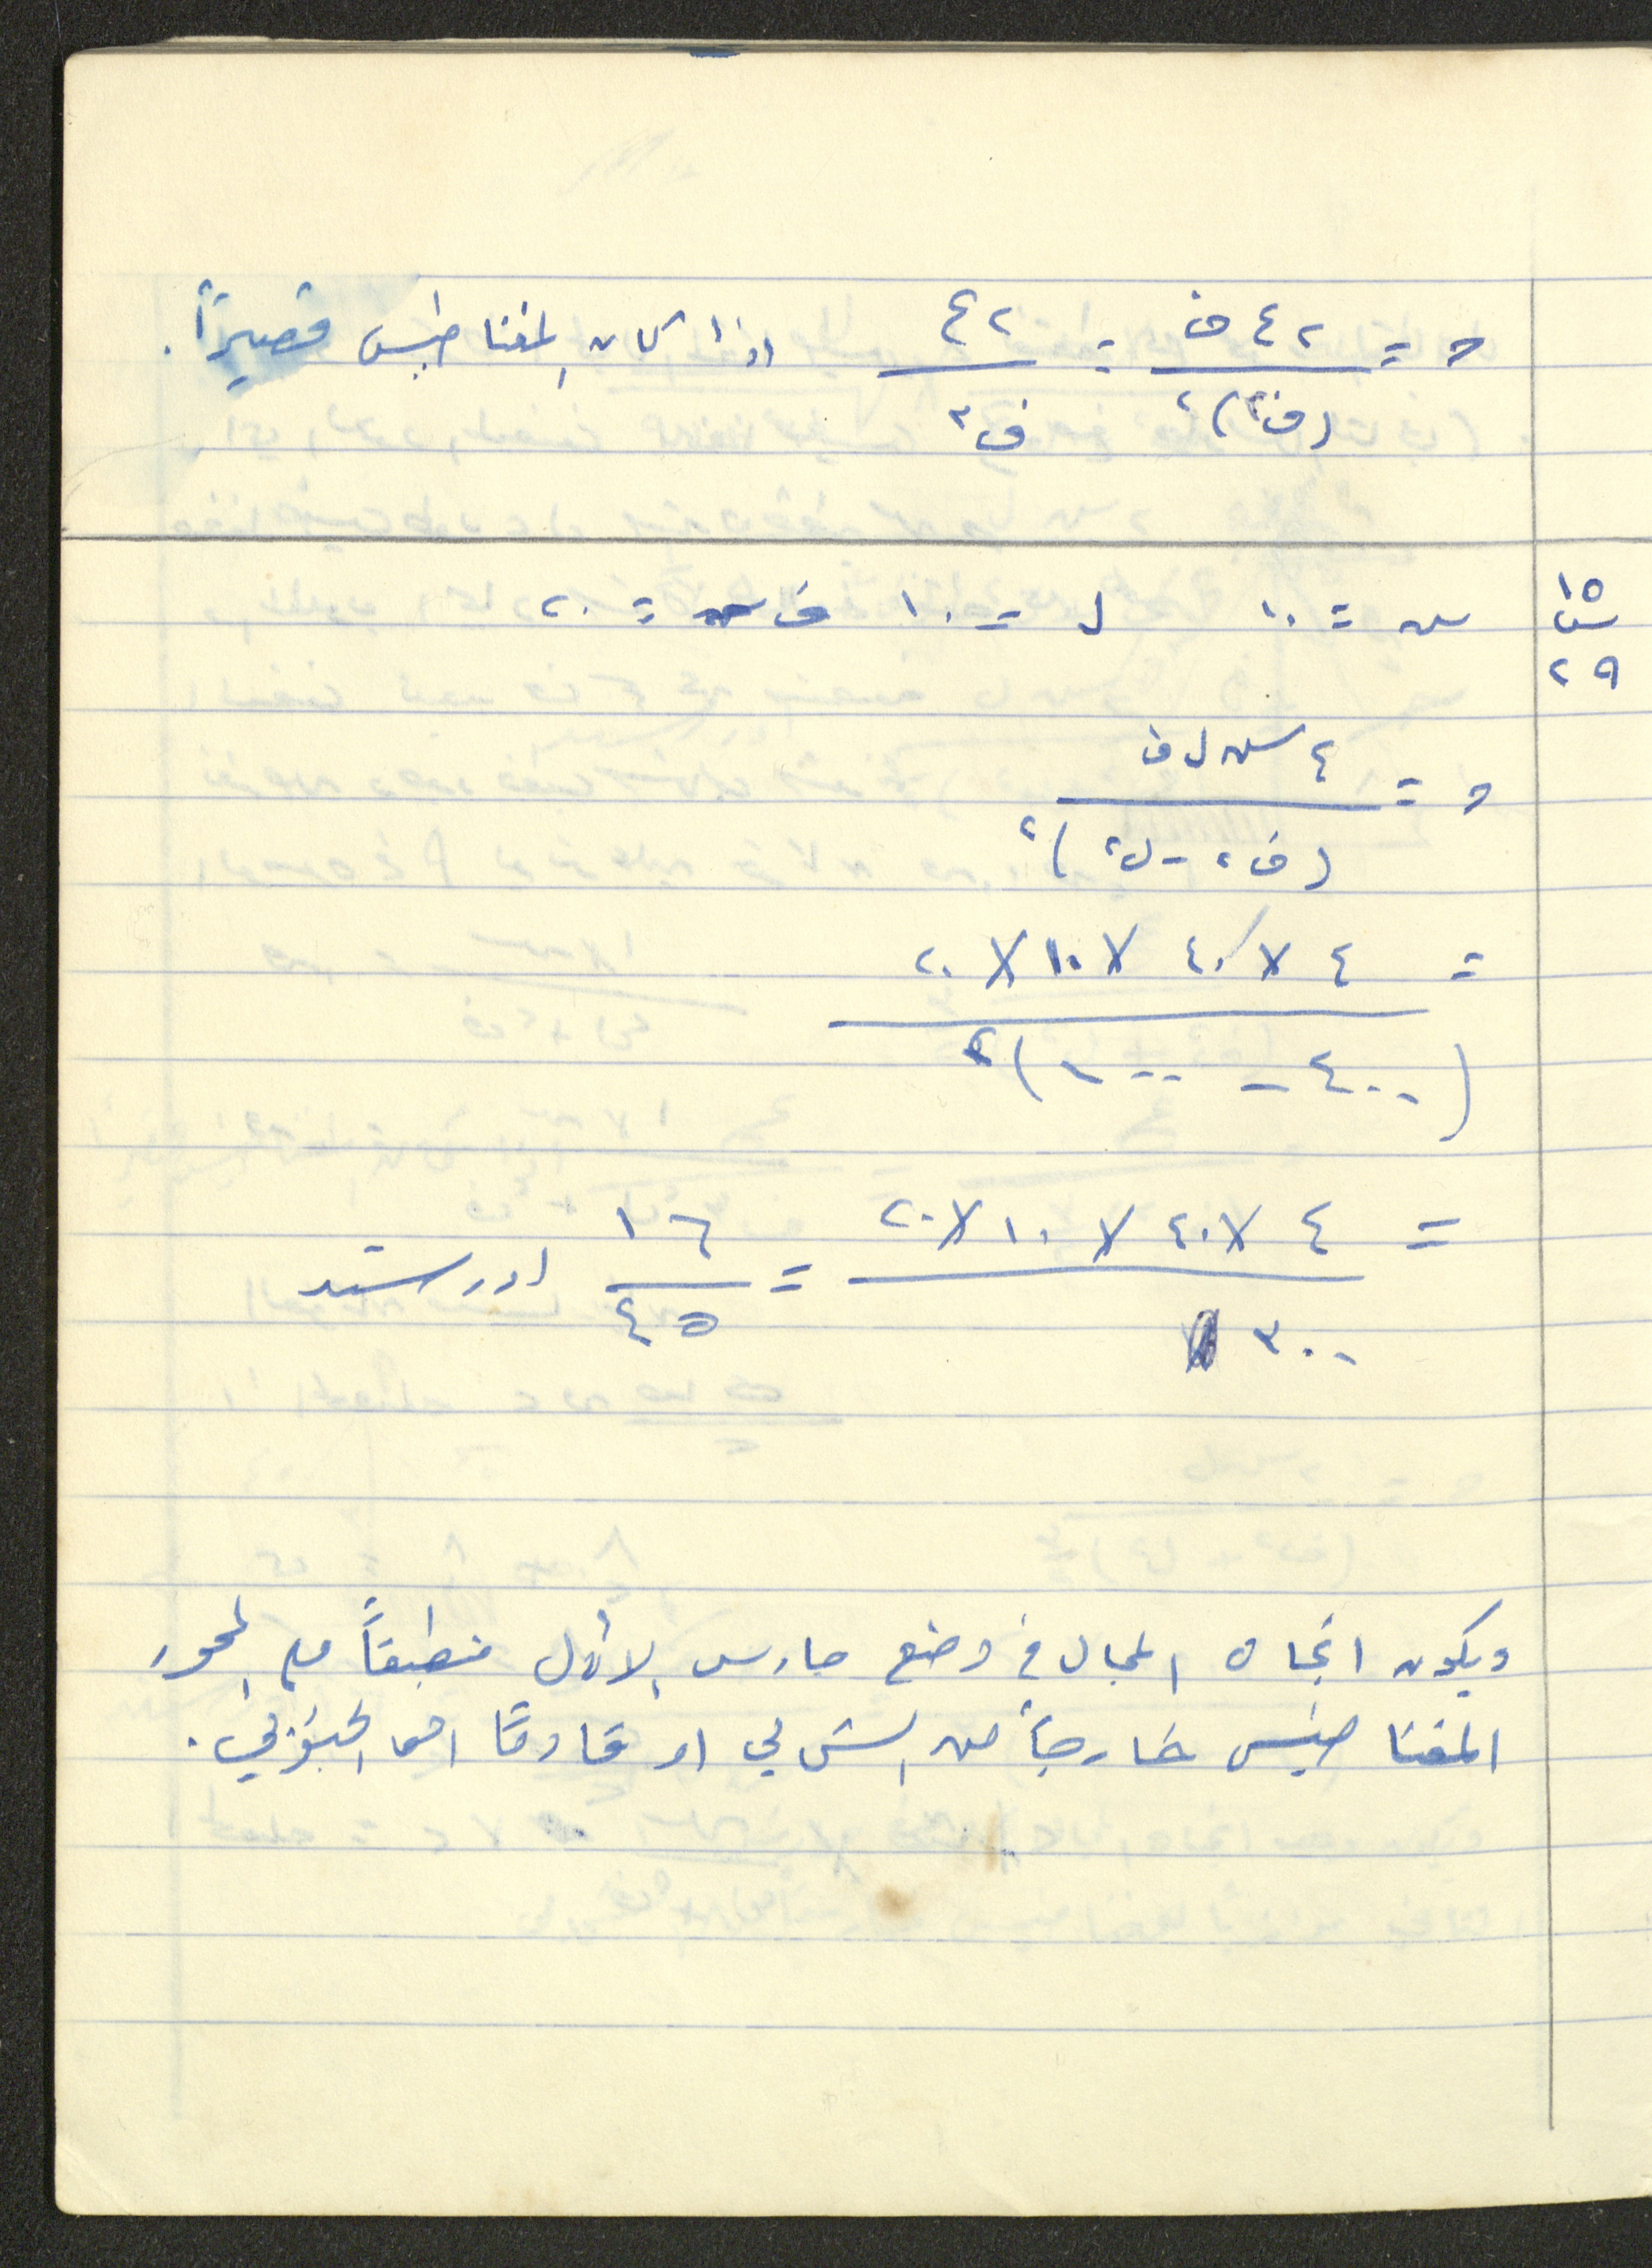 ح = ٢ ع ف / (ف٢)٢ = ٢ ع / ف٣ اذا كان المغناطيس قصيراً.
١٥ س ٢٩
س = ١٠ ل = ١٠ ف = ٢٠
ح = ٤ س ل ف / (ف٢ - ل٢)٢
= ٤ × ٤٠ × ١٠ × ٢٠ / (٤٠٠ - ١٠٠)٢
= ٤ × ٤٠ × ١٠ × ٢٠ / ٣٠٠ = ١٦ / ٤٥ اورستد
ويكون اتجاه المجال في وضع جاوس الاول منطبقاً مع المحور
المغناطيسي خارجاً من الشمالي او قادماً نحو الجنوبي.